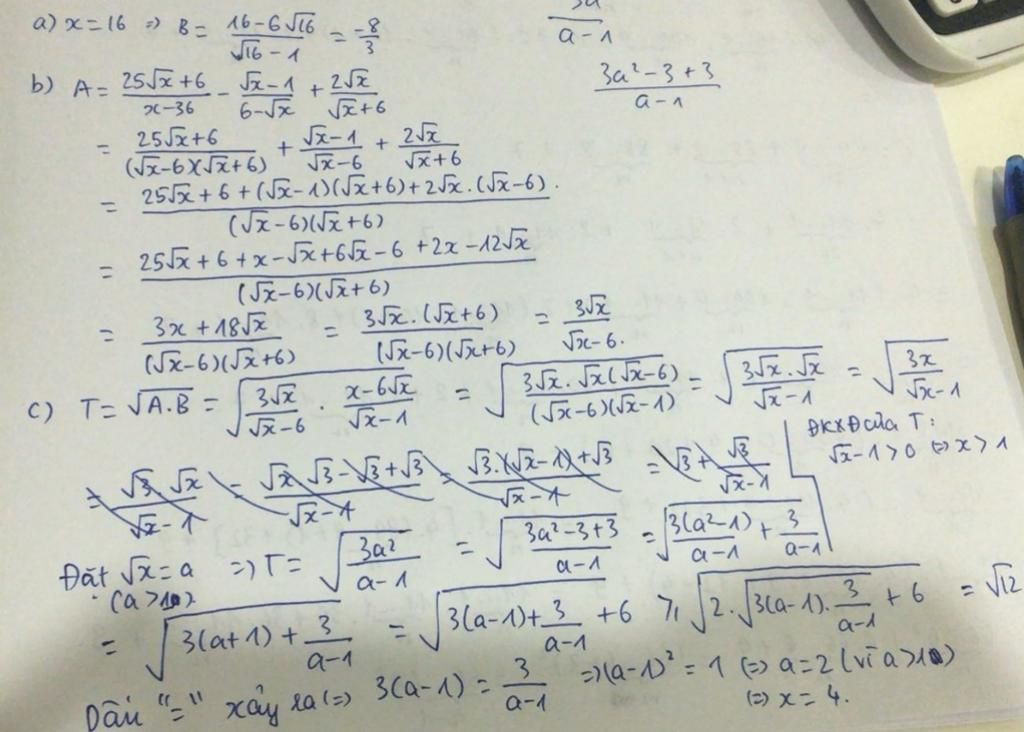 a) x=16 => B= (16-6√16)/(√16-1) = -8/3
3a/(a-1)
(3a²-3+3)/(a-1)
b) A= (25√x+6)/(x-36) - (√x-1)/(6-√x) + 2√x/(√x+6)
= (25√x+6)/((√x-6)(√x+6)) + (√x-1)/(√x-6) + 2√x/(√x+6)
= (25√x+6+(√x-1)(√x+6)+2√x.(√x-6))/((√x-6)(√x+6))
= (25√x+6+x-√x+6√x-6+2x-12√x)/((√x-6)(√x+6))
= (3x+18√x)/((√x-6)(√x+6)) = (3√x.(√x+6))/((√x-6)(√x+6)) = 3√x/(√x-6).
c) T= √(A.B) = √(3√x/(√x-6) . (x-6√x)/(√x-1)) = √((3√x.√x(√x-6))/((√x-6)(√x-1))) = √((3√x.√x)/(√x-1)) = √(3x/(√x-1))
ĐKXĐ của T:
√x-1>0 <=> x>1
= (√3.√x)/(√x-1) = (√x.√3-√3+√3)/(√x-1) = (√3.(√x-1)+√3)/(√x-1) = √3 + √3/(√x-1)
Đặt √x=a => T= √(3a²/(a-1)) = √((3a²-3+3)/(a-1)) = √(3(a²-1)/(a-1) + 3/(a-1))
(a>1)
= √(3(a+1)+3/(a-1)) = √(3(a-1)+3/(a-1)+6) ≥ √(2.√(3(a-1).3/(a-1))+6) = √12
Dấu "=" xảy ra <=> 3(a-1) = 3/(a-1) => (a-1)²=1 <=> a=2 (vì a>1)
<=> x=4.